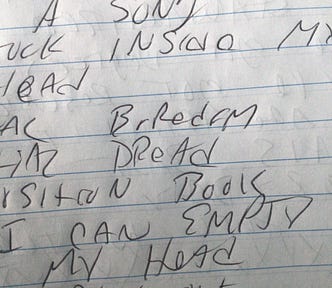 A SONG
UCK INSIDO MY
HEAD
AC BrRedOM
DREAD
ISITION BOOK
I CAN EMPTY
MY HEAD